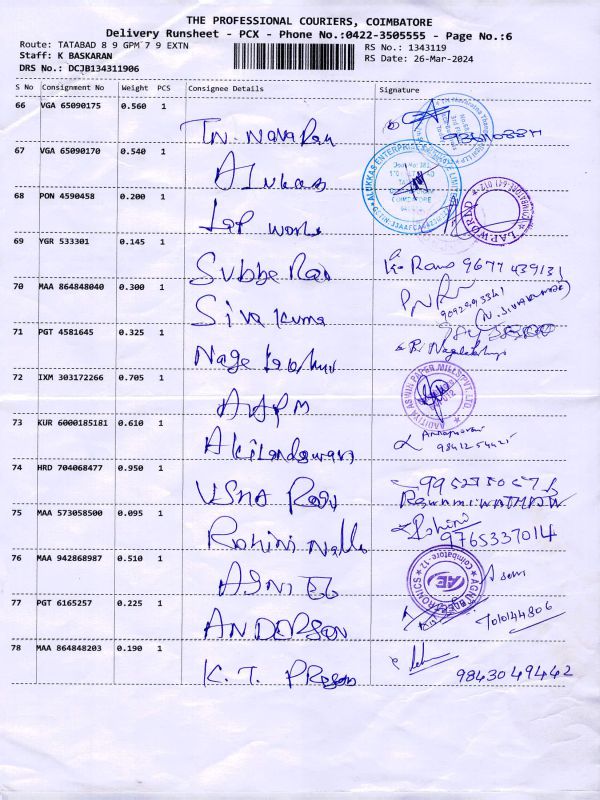 THE PROFESSIONAL COURIERS, COIMBATORE
Delivery Runsheet - PCX - Phone No.:0422-3505555 - Page No.:6
Route: TATABAD 8 9 GPM 7 9 EXTN
RS No.: 1343119
Staff: K BASKARAN
RS Date: 26-Mar-2024
DRS No.: DCJB134311906
S No Consignment No Weight PCS Consignee Details Signature
66 VGA 65090175 0.560 1
67 VGA 65090170 0.540 1
Alukas
ALUKKAS ENTERPRISE
COIMBATORE
68 PON 4590458 0.200 1
Lap World
LAPWORLD
69 YGR 533301 0.145 1
Subba Rao
9677439131
70 MAA 864848040 0.300 1
Siva Kuma
71 PGT 4581645 0.325 1
72 IXM 303172266 0.705 1
AAPM
AADITIYA ASWIN PAPER MILLS PVT. LTD.
73 KUR 6000185181 0.610 1
Akilandeswari
74 HRD 704068477 0.950 1
Usha
75 MAA 573058500 0.095 1
Rohini Nalla
Rohini
9765337014
76 MAA 942868987 0.510 1
Agni
Coimbatore-12
AE
77 PGT 6165257 0.225 1
ANDERSON
7010144806
78 MAA 864848203 0.190 1
K. T.
9843049442